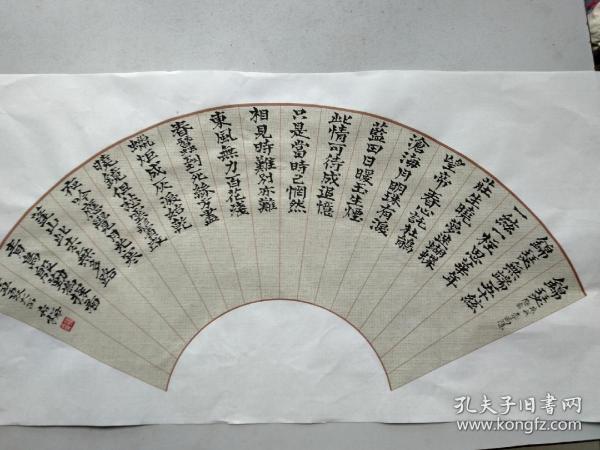 錦瑟
錦瑟無端五十絃
一絃一柱思華年
莊生曉夢迷蝴蝶
望帝春心託杜鵑
滄海月明珠有淚
藍田日暖玉生煙
此情可待成追憶
只是當時已惘然
相見時難別亦難
東風無力百花殘
春蠶到死絲方盡
蠟炬成灰淚始乾
曉鏡但愁雲鬢改
夜吟應覺月光寒
蓬山此去無多路
青鳥殷勤為探看
孔夫子旧书网
www.kongfz.com